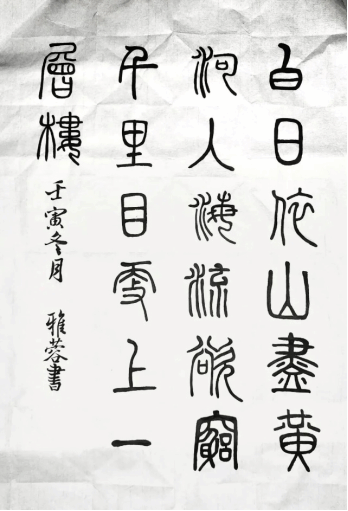 白日依山盡黃
河入海流欲窮
千里目更上一
層樓 壬寅冬月 雅蓉書